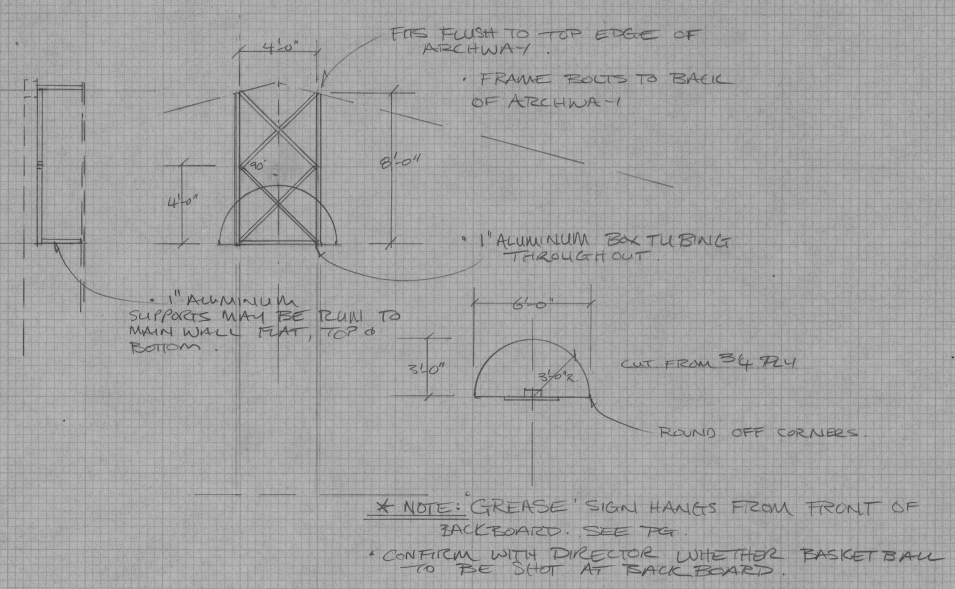 FITS FLUSH TO TOP EDGE OF
ARCHWAY.
• FRAME BOLTS TO BACK
OF ARCHWAY
4'-0"
8'-0"
90°
4'-0"
• 1" ALUMINUM BOX TUBING
THROUGHOUT.
• 1" ALUMINUM
SUPPORTS MAY BE RUN TO
MAIN WALL FLAT, TOP &
BOTTOM.
6'-0"
3'-0"
3'-0"R.
CUT FROM 3/4 PLY
ROUND OFF CORNERS.
* NOTE: 'GREASE' SIGN HANGS FROM FRONT OF
BACKBOARD. SEE PG.
• CONFIRM WITH DIRECTOR WHETHER BASKETBALL
TO BE SHOT AT BACKBOARD.